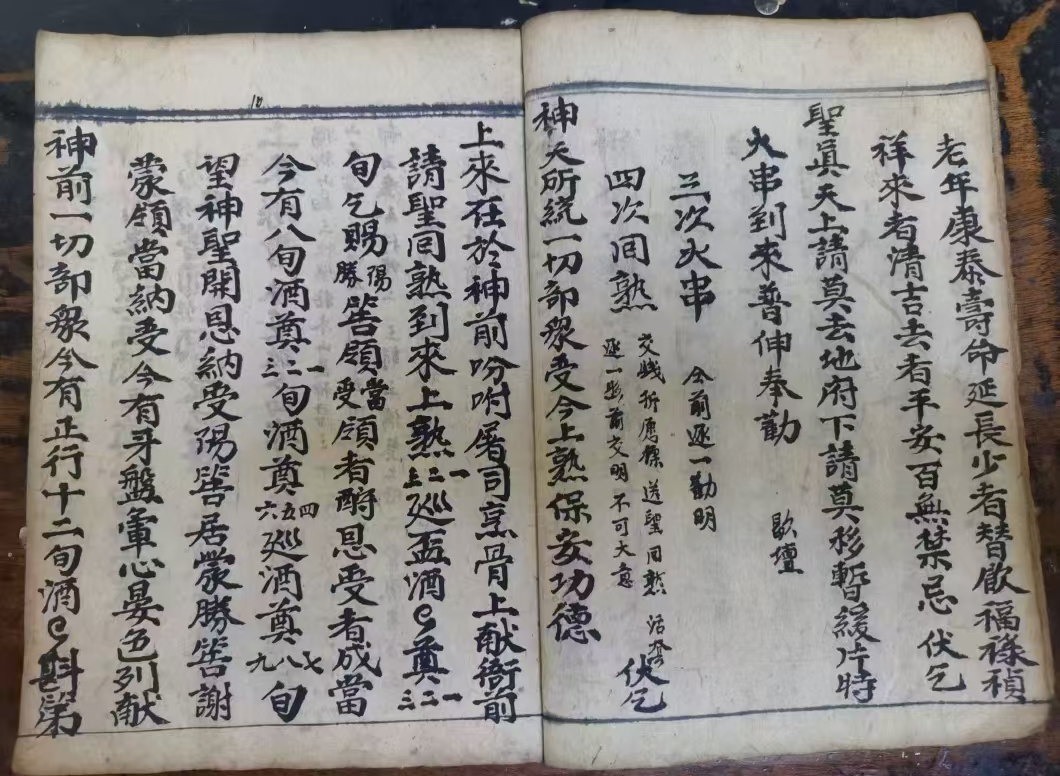 老年康泰壽命延長少者替飲福祿禎
祥來者清吉去者平安百無禁忌 伏乞
聖眞天上請莫去地府下請莫移暫緩片時
火串到來普伸奉勸 歇壇
三次火串 仝前逐一勸明
四次回熟 交賤折愿標送聖回熟
逐一出前交明不可大意 伏乞
神天所統一切部衆受今上熟保安功德
上來在於神前吩咐屠司烹骨上献衙前
請聖回熟到來上熟一二上巡盃酒奠一二三
旬乞賜陽勝筶領當受領者酧恩受者成當
今有八旬酒奠一二三旬酒奠四五六巡酒奠七八九旬
望神聖開恩納受陽筶居蒙勝筶謝
蒙領當納受今有牙盤葷心晏色列献
神前一切部衆今有正行十二旬酒斟第
10